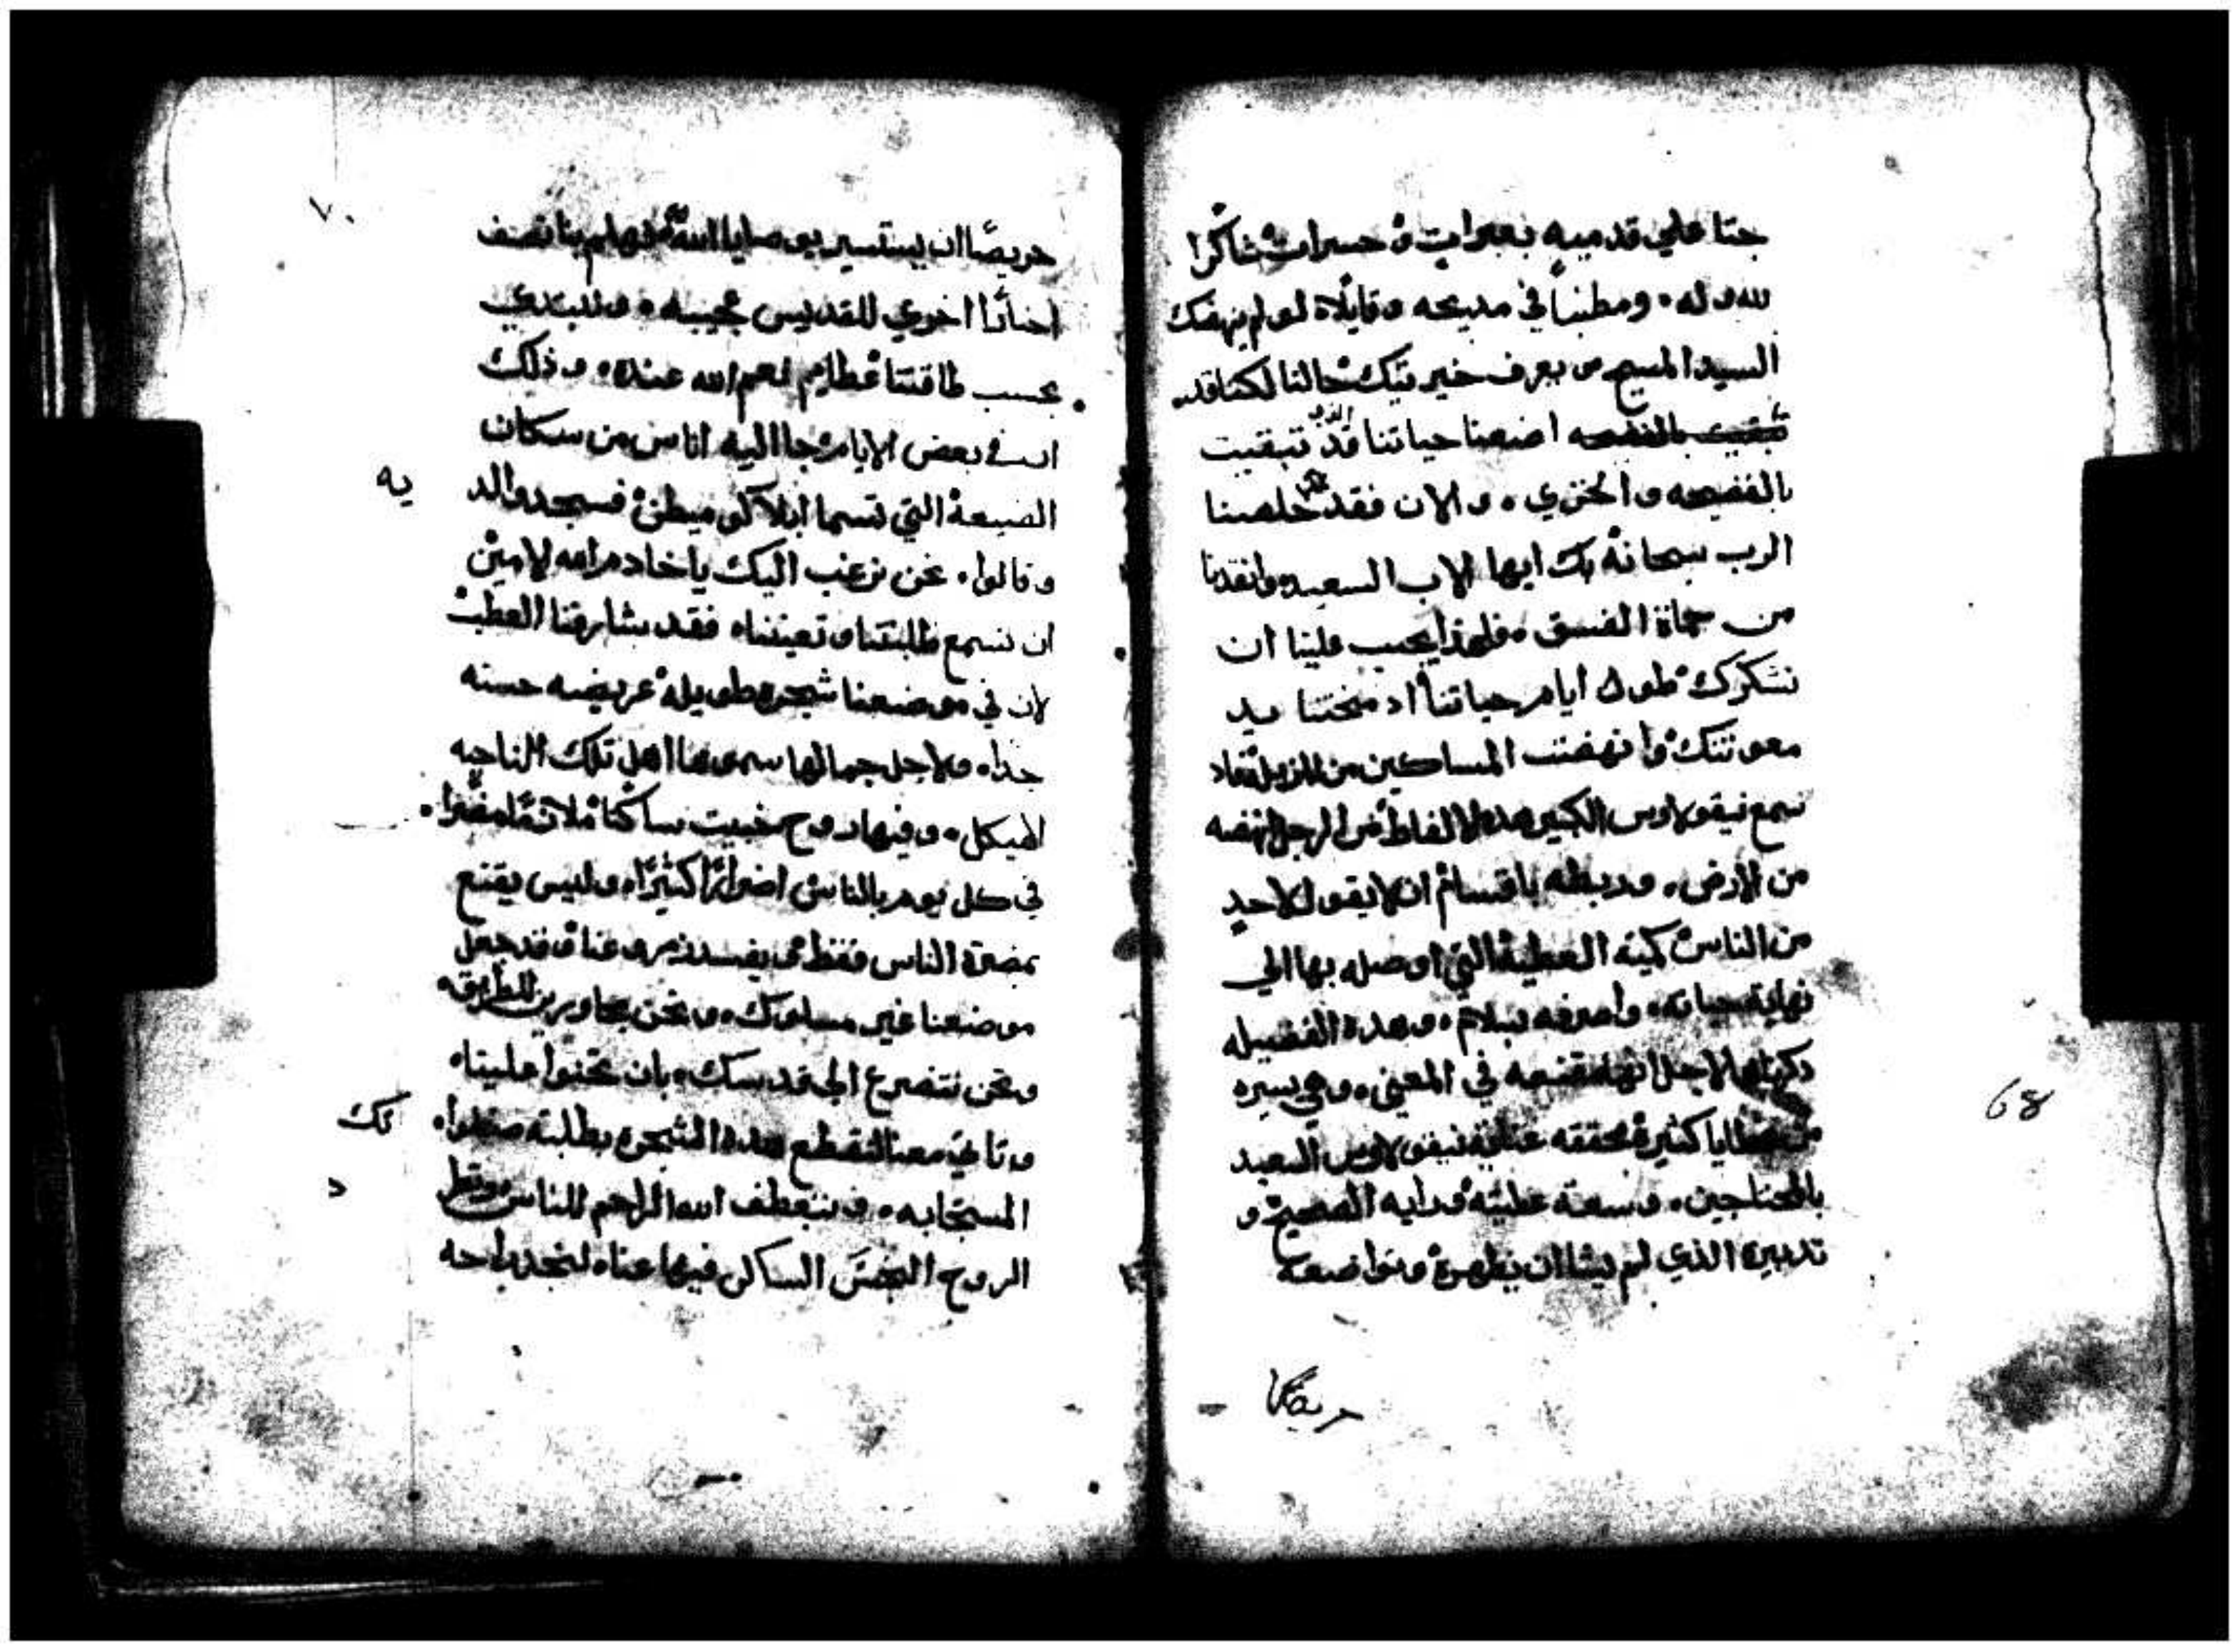 جتا علي قدميه بعبرات وحسرات شاكرا
لله وله ومطنباً في مديحه وقايلاً لو لم ينهضك
السيد المسيح من يعرف خيريتك حالنا لكنا قد
تبقيت بالفضيحه اضعنا حياتنا الذي قد تبقيت
بالفضيحه والخزي والان فقد خلصنا
الرب سبحانه بك ايها الاب السعيد وانقدنا
من حماة الفسق فلهذا يجب علينا ان
نشكرك طول ايام حياتنا اد منحتنا يد
معونتك وانهضت المساكين من المزبله فاد
سمع نيقولاوس الكبير هده الالفاظ من الرجل انهضه
من الارض وربطه باقسام ان لا يقول لاحد
من الناس كمية العطية التي اوصله بها الي
نهاية حياته واصرفه بسلام وهده الفضيله
دكرناها لاجل انها مقنعه في المعني وهي يسيره
من عطايا كثيرة محققه عناية نيقولاوس السعيد
بالمحتاجين وسعة عطيته ورايه الصحيح و
تدبيره الذي لم يشا ان يظهره وتواضعه
حريصًا
68
٧٠
حريصًا ان يستسير بوصايا الله فهلم بنا نصف
اخبارًا اخري للقديس عجيبه ونبتدي
بحسب طاقتنا عظايم نعم الله عنده وذلك
ان في بعض الايام جا اليه اناس من سكان
الضيعة التي تسما ابلاكوميطن فسجدوا له
يه
وقالوا نحن نرغب اليك يا خادم الله الامين
ان تسمع طلبتنا وتعيننا فقد شارفنا العطب
لان في موضعنا شجره طويله عريضه حسنه
جدا ولاجل جمالها سموها اهل تلك الناحيه
الهيكل وفيها روح خبيت ساكنًا ملازمًا مضرا
في كل يوم بالناس اضرارًا كثيرًا وليس يقنع
بمضرة الناس فقط بل يفسد زروعنا وقد جعل
موضعنا غير مسلوك ونحن مجاورين الطريق
ونحن نتضرع الي قدسك بان تحنوا علينا
وتاتي معنا لتقطع هده الشجره بطلبته
تك
المستجابه ويتعطف الله الراحم للناس
د
الروح النجس الساكن فيها عنا لنجد راحه